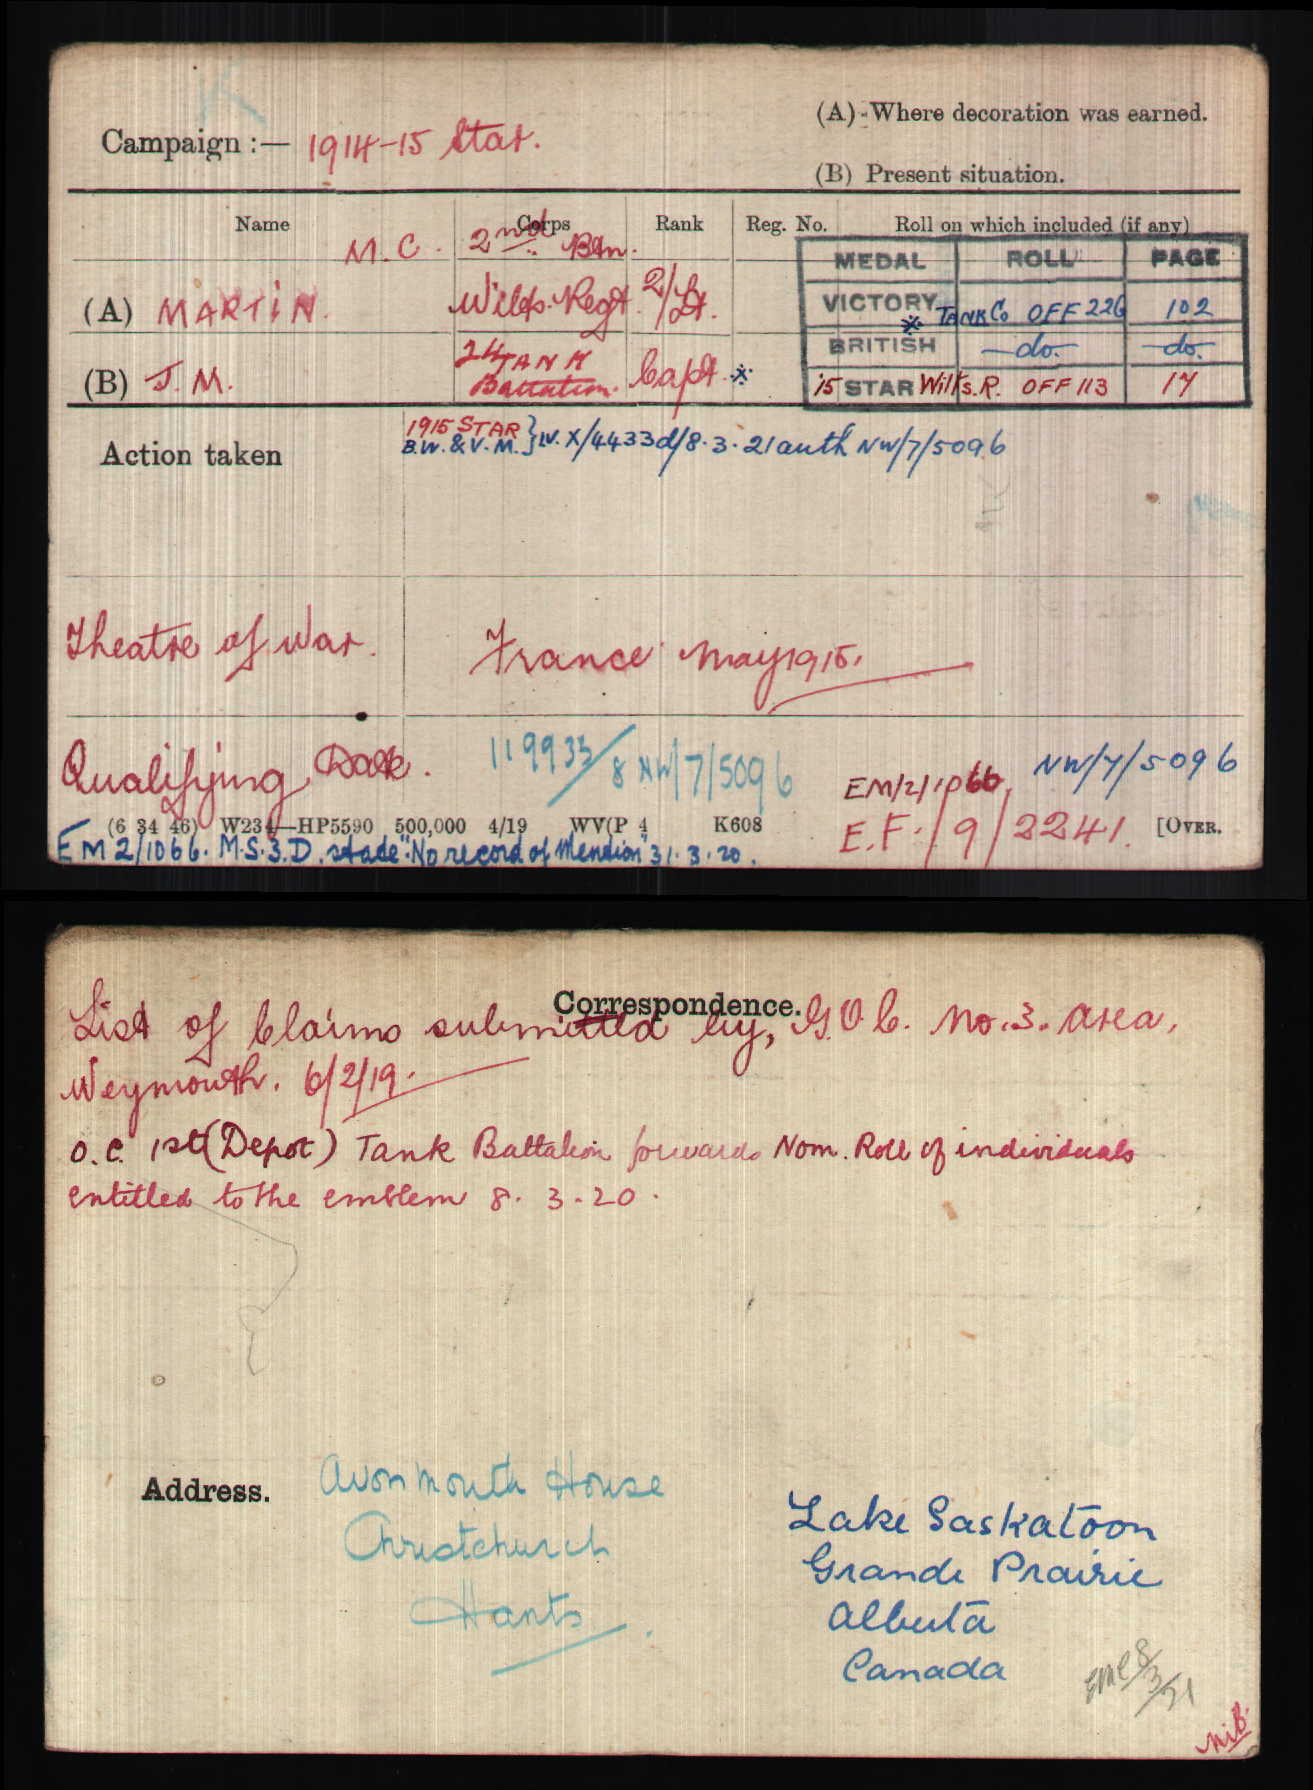 Campaign :— 1914-15 Star.
(A) - Where decoration was earned.
(B) Present situation.
Name Corps Rank Reg. No. Roll on which included (if any)
M.C. 2nd Btn.
MEDAL ROLL PAGE
(A) MARTIN. Wilts. Regt. 2/Lt.
VICTORY TANK Co OFF 226 102
BRITISH —do— do.
(B) J. M. 24 TANK Battalion. Capt.
15 STAR Wilts. R. OFF 113 17
Action taken
1915 STAR
B.W. & V. M. } IV. X/4433d/8.3.21 auth NW/7/5096
Theatre of War. France May 1915.
Qualifying Date. 119933/8 NW/7/5096
EM/2/1066. NW/7/5096
(6 34 46) W234—HP5590 500,000 4/19 WV(P 4 K608
E.F./9/2241. [OVER.
EM 2/1066. M.S.3.D. state "No record of Mention" 31.3.20.
Correspondence.
List of Claims submitted by, G.O.C. No. 3. Area,
Weymouth. 6/2/19.
O.C. 1st (Depot) Tank Battalion forwards Nom. Roll of individuals
entitled to the emblem 8. 3. 20.
Address.
Avonmouth House
Christchurch
Hants.
Lake Saskatoon
Grande Prairie
Alberta
Canada
8/3/21